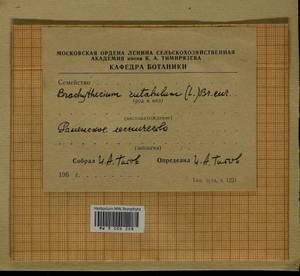 МОСКОВСКАЯ ОРДЕНА ЛЕНИНА СЕЛЬСКОХОЗЯЙСТВЕННАЯ
АКАДЕМИЯ имени К. А. ТИМИРЯЗЕВА
КАФЕДРА БОТАНИКИ
Семейство
Brachythecium rutabulum (L.) Br. eur.
(род и вид)
(местонахождение)
Раменское лесничество
(экология)
Собрал И. А. Титов Определил И. А. Титов
196 г.
Herbarium MW, Bryophyta